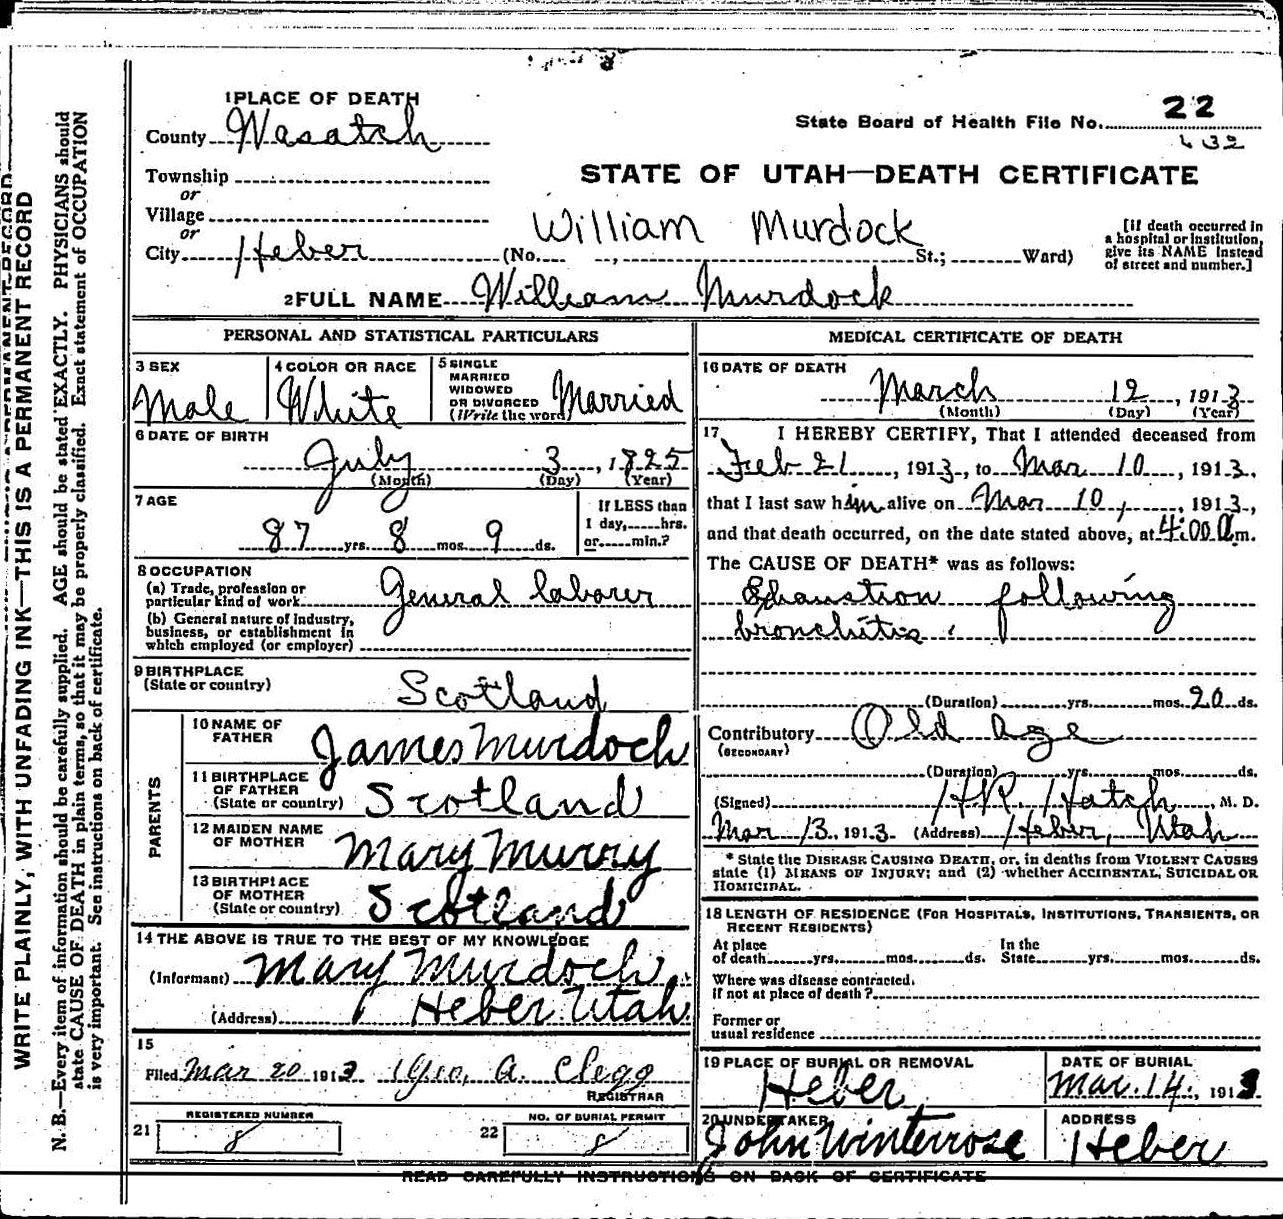 1 PLACE OF DEATH
County Wasatch
State Board of Health File No. 22
432
Township
or
Village
or
City Heber
STATE OF UTAH—DEATH CERTIFICATE
William Murdock
(No. , St.; Ward)
[If death occurred in
a hospital or institution,
give its NAME instead
of street and number.]
2 FULL NAME William Murdock
PERSONAL AND STATISTICAL PARTICULARS
3 SEX
Male
4 COLOR OR RACE
White
5 SINGLE
MARRIED
WIDOWED
OR DIVORCED
(Write the word
Married
6 DATE OF BIRTH
July 3, 1825
(Month) (Day) (Year)
7 AGE
87 yrs. 8 mos. 9 ds.
If LESS than
1 day, hrs.
or min.?
8 OCCUPATION
(a) Trade, profession or
particular kind of work General laborer
(b) General nature of industry,
business, or establishment in
which employed (or employer)
9 BIRTHPLACE
(State or country)
Scotland
PARENTS
10 NAME OF
FATHER
James Murdoch
11 BIRTHPLACE
OF FATHER
(State or country)
Scotland
12 MAIDEN NAME
OF MOTHER
Mary Murry
13 BIRTHPLACE
OF MOTHER
(State or country)
Scotland
14 THE ABOVE IS TRUE TO THE BEST OF MY KNOWLEDGE
(Informant) Mary Murdoch
(Address) Heber Utah
15
Filed Mar 20 1913 Geo. A. Clegg
REGISTRAR
REGISTERED NUMBER
21 8
NO. OF BURIAL PERMIT
22 8
MEDICAL CERTIFICATE OF DEATH
16 DATE OF DEATH
March 12, 1913
(Month) (Day) (Year)
17 I HEREBY CERTIFY, That I attended deceased from
Feb 21, 1913, to Mar 10, 1913,
that I last saw him alive on Mar 10, 1913,
and that death occurred, on the date stated above, at 4:00 a m.
The CAUSE OF DEATH* was as follows:
Exhaustion following
bronchitis
(Duration) yrs. mos. 20 ds.
Contributory Old age
(SECONDARY)
(Duration) yrs. mos. ds.
(Signed) H.R. Hatch, M. D.
Mar 13, 1913. (Address) Heber, Utah
* State the DISEASE CAUSING DEATH, or, in deaths from VIOLENT CAUSES
state (1) MEANS OF INJURY; and (2) whether ACCIDENTAL, SUICIDAL OR
HOMICIDAL.
18 LENGTH OF RESIDENCE (FOR HOSPITALS, INSTITUTIONS, TRANSIENTS, OR
RECENT RESIDENTS)
At place
of death yrs. mos. ds.
In the
State yrs. mos. ds.
Where was disease contracted,
if not at place of death?
Former or
usual residence
19 PLACE OF BURIAL OR REMOVAL
Heber
DATE OF BURIAL
Mar. 14, 1913
20 UNDERTAKER
John Winterrose
ADDRESS
Heber
READ CAREFULLY INSTRUCTIONS ON BACK OF CERTIFICATE
WRITE PLAINLY, WITH UNFADING INK—THIS IS A PERMANENT RECORD
N. B.—Every item of information should be carefully supplied. AGE should be stated EXACTLY. PHYSICIANS should
state CAUSE OF DEATH in plain terms, so that it may be properly classified. Exact statement of OCCUPATION
is very important. See instructions on back of certificate.